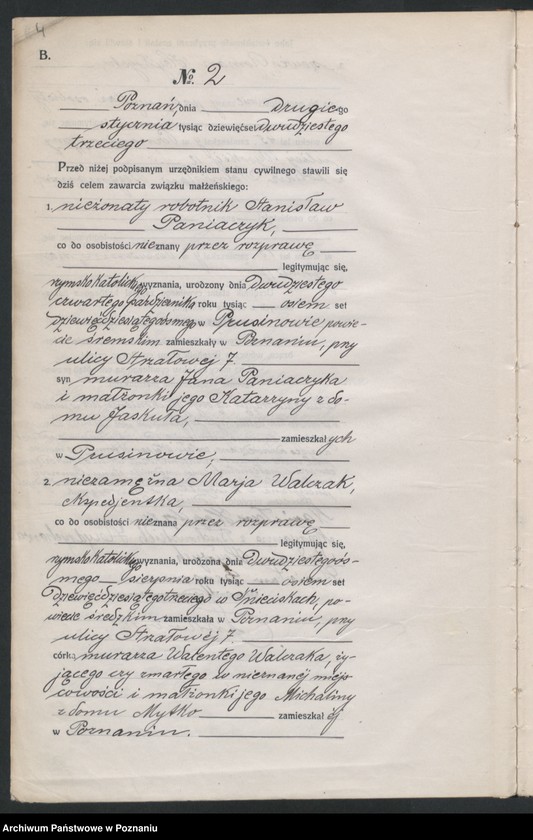 4
B.
№ 2
Poznań, dnia drugiego
stycznia tysiąc dziewięćset dwudziestego
trzeciego
Przed niżej podpisanym urzędnikiem stanu cywilnego stawili się
dziś celem zawarcia związku małżeńskiego:
1. nieżonaty robotnik Stanisław
Paniaczyk,
co do osobistości nieznany przez rozprawę
legitymując się,
rzymsko katolickiego wyznania, urodzony dnia dwudziestego
czwartego października roku tysiąc osiem set
dziewięćdziesiątegoósmego w Prusinowie powie-
cie śremskim zamieszkały w Poznaniu, przy
ulicy Strzałowej 7.
syn murarza Jana Paniaczyka
i małżonki jego Katarzyny z do-
mu Jaskuła,
zamieszkałych
w Prusinowie,
2. niezamężna Marja Walczak,
ekspedjentka,
co do osobistości nieznana przez rozprawę
legitymując się,
rzymsko katolickiego wyznania, urodzona dnia dwudziestegoós-
mego sierpnia roku tysiąc osiem set
dziewięćdziesiątegotrzeciego w Śnieciskach, po-
wiecie średzkim zamieszkała w Poznaniu, przy
ulicy Strzałowej 7.
córka murarza Walentego Walczaka, ży-
jącego czy zmarłego w nieznanej miejs-
cowości i małżonki jego Michaliny
z domu Mytko zamieszkałej
w Poznaniu.
Archiwum Państwowe w Poznaniu